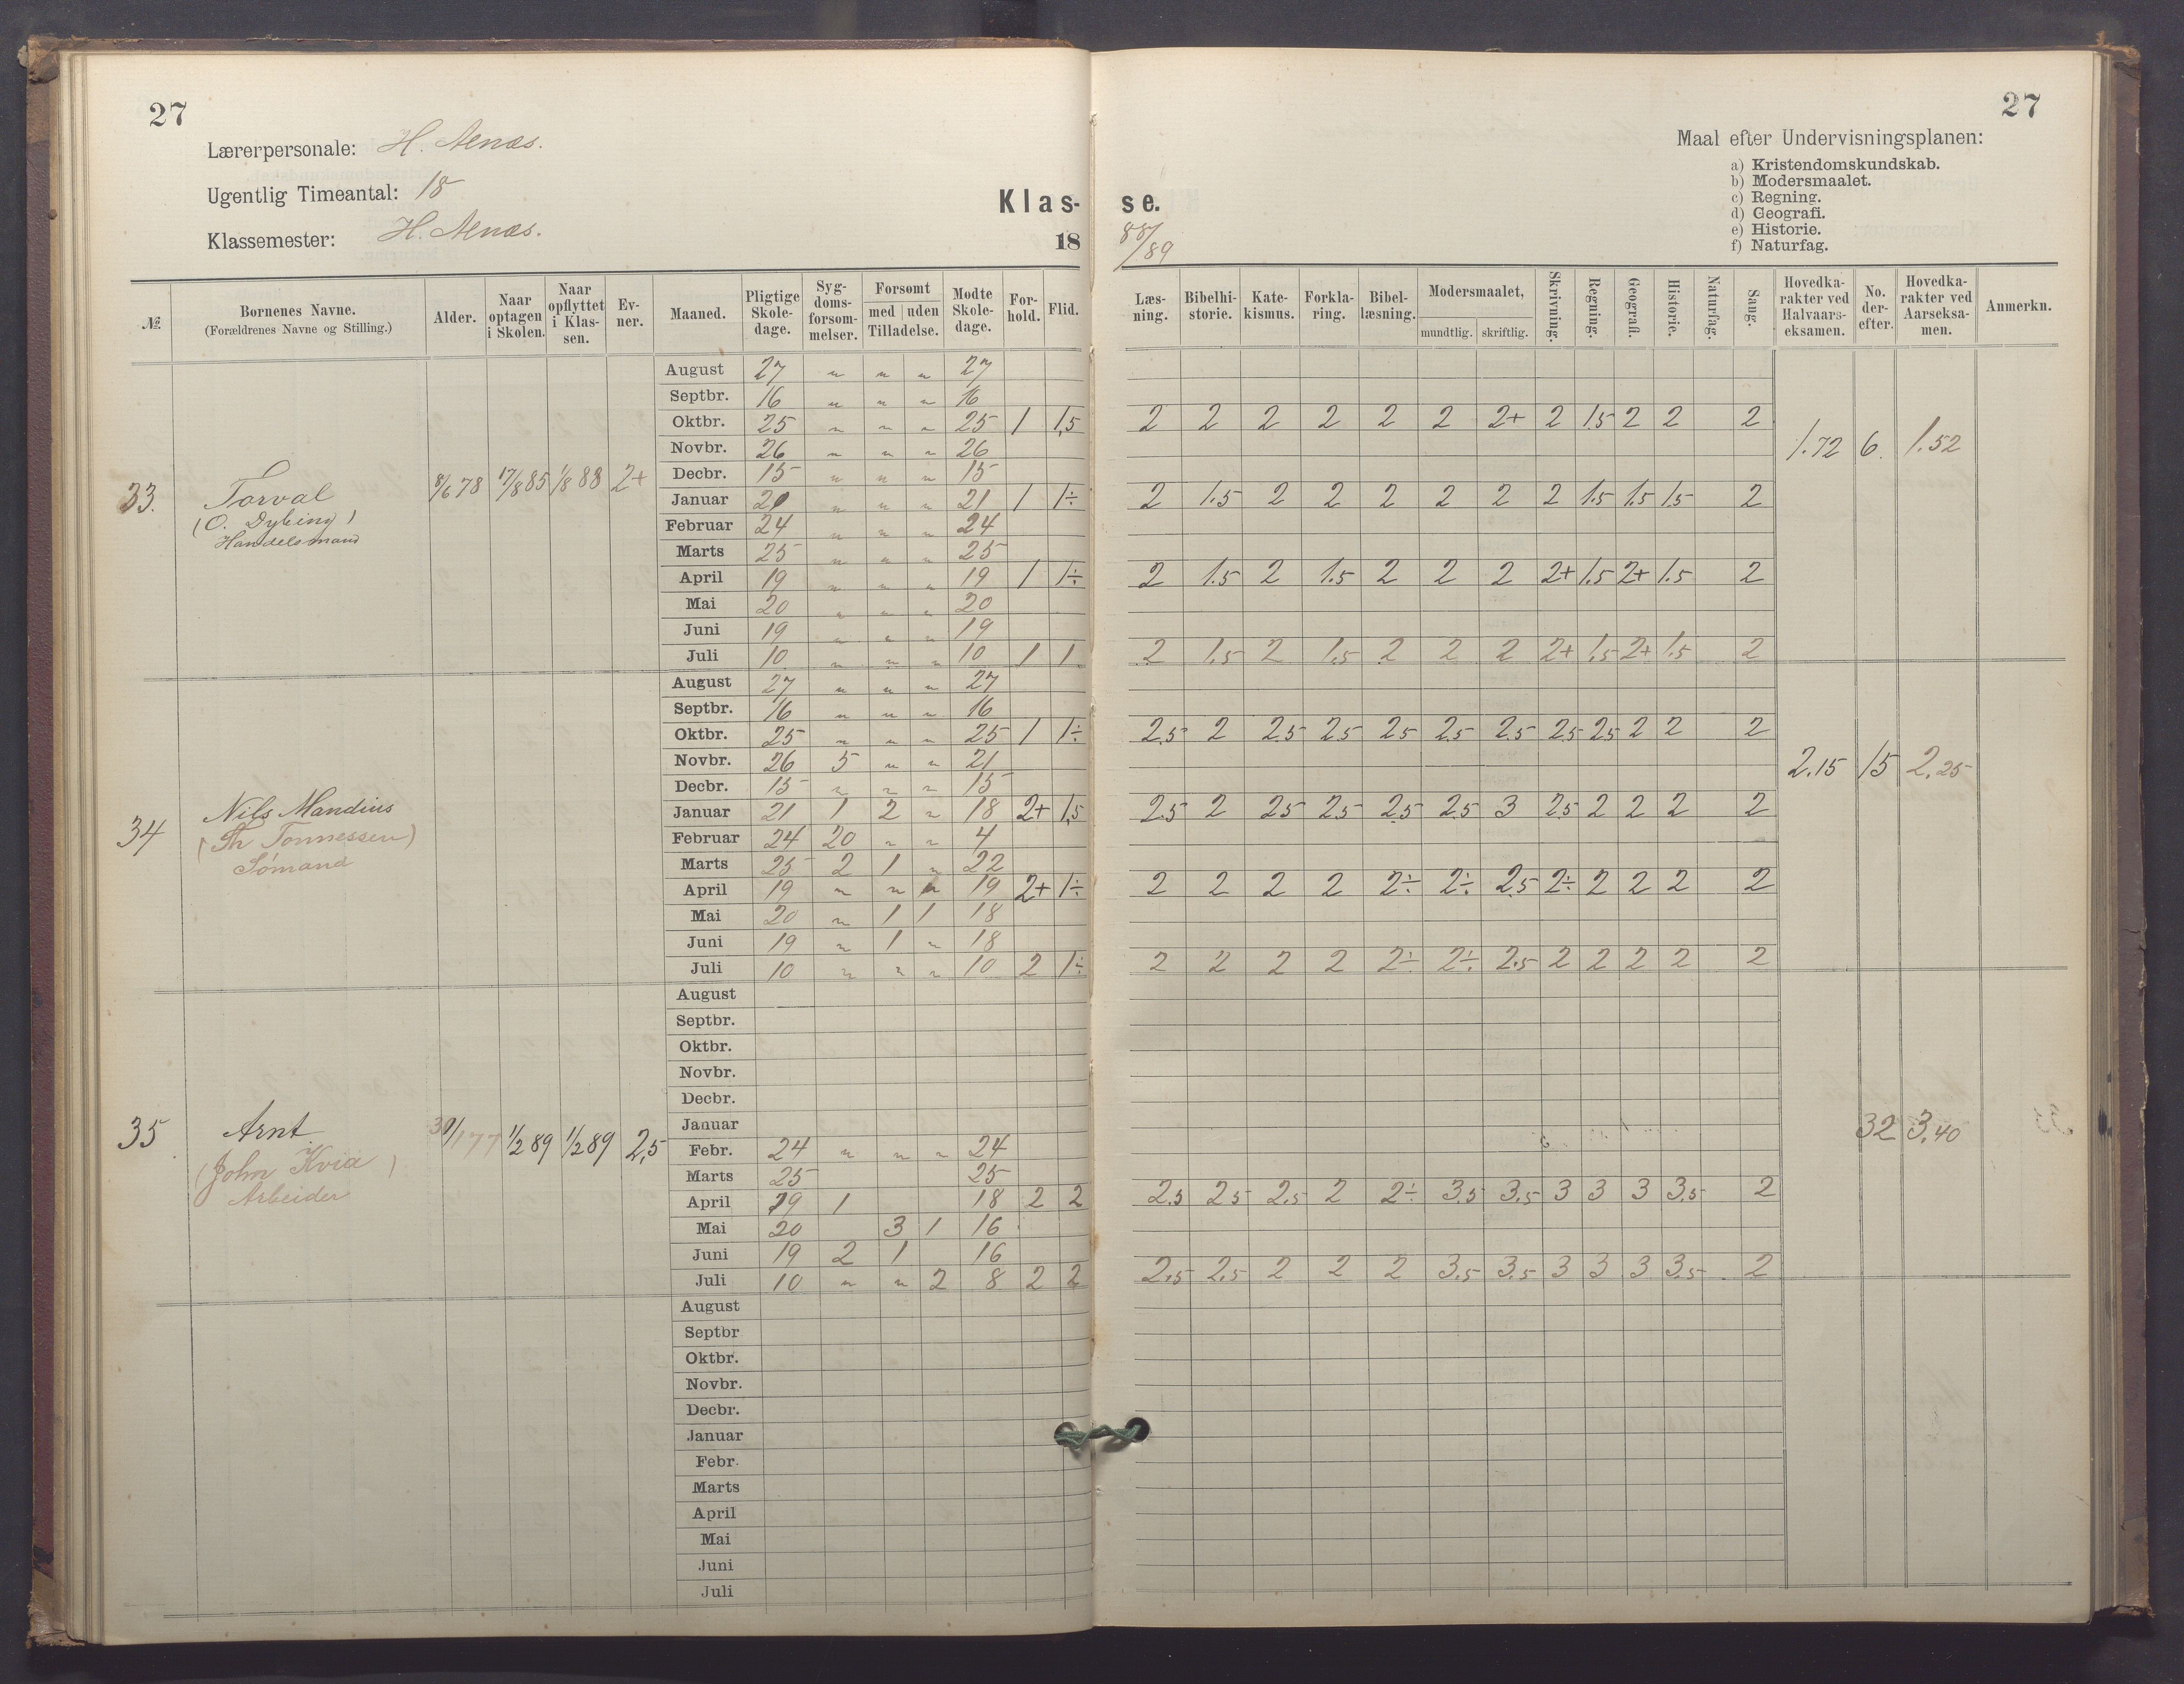 27
Lærerpersonale: H. Aenæs.
Ugentlig Timeantal: 18
Klassemester: H. Aenæs.
Klas-
18
№
Børnenes Navne.
(Forældrenes Navne og Stilling.)
Alder.
Naar optagen i Skolen.
Naar opflyttet i Klassen.
Evner.
Maaned.
Pligtige Skoledage.
Sygdomsforsømmelser.
Forsømt
med | uden
Tilladelse.
Mødte Skoledage.
Forhold.
Flid.
33. Torval (O. Dybing) Handelsmand 8/6 78 17/8 85 1/8 88 2+
August 27 " " " 27
Septbr. 16 " " " 16
Oktbr. 25 " " " 25 1 1,5
Novbr. 26 " " " 26
Decbr. 15 " " " 15
Januar 21 " " " 21 1 1÷
Februar 24 " " " 24
Marts 25 " " " 25
April 19 " " " 19 1 1÷
Mai 20 " " " 20
Juni 19 " " " 19
Juli 10 " " " 10 1 1
34 Nils Mandius (Th Tonnessen) Sømand
August 27 " " " 27
Septbr. 16 " " " 16
Oktbr. 25 " " " 25 1 1÷
Novbr. 26 5 " " 21
Decbr. 15 " " " 15
Januar 21 1 2 " 18 2+ 1,5
Februar 24 20 " " 4
Marts 25 2 1 " 22
April 19 " " " 19 2+ 1÷
Mai 20 " 1 1 18
Juni 19 " 1 " 18
Juli 10 " " " 10 2 1÷
35 Arnt (John Kvia) Arbeider 30/1 77 1/2 89 1/2 89 2,5
August
Septbr.
Oktbr.
Novbr.
Decbr.
Januar
Febr. 24 " " " 24
Marts 25 25
April 19 1 18 2 2
Mai 20 3 1 16
Juni 19 2 1 16
Juli 10 " " 2 8 2 2
August
Septbr
Oktbr.
Novbr.
Decbr.
Januar
Febr.
Marts
April
Mai
Juni
Juli
27
Maal efter Undervisningsplanen:
a) Kristendomskundskab.
b) Modersmaalet.
c) Regning.
d) Geografi.
e) Historie.
f) Naturfag.
se.
88/89
Læsning.
Bibelhistorie.
Katekismus.
Forklaring.
Bibellæsning.
Modersmaalet,
mundtlig. | skriftlig.
Skrivning.
Regning.
Geografi.
Historie.
Naturfag.
Sang.
Hovedkarakter ved Halvaarseksamen.
No. derefter.
Hovedkarakter ved Aarseksamen.
Anmerkn.
2 2 2 2 2 2 2+ 2 1.5 2 2 2
1.72 6. 1.52
2 1.5 2 2 2 2 2 2 1.5 1.5 1.5 2
2 1.5 2 1.5 2 2 2 2+ 1.5 2+ 1.5 2
2 1.5 2 1.5 2 2 2 2+ 1.5 2+ 1.5 2
2.5 2 2.5 2.5 2.5 2.5 2.5 2.5 2.5 2 2 2
2.15 15 2.25
2.5 2 2.5 2.5 2.5 2.5 3 2.5 2 2 2 2
2 2 2 2 2÷ 2÷ 2.5 2÷ 2 2 2 2
2 2 2 2 2÷ 2÷ 2.5 2 2 2 2 2
32 3.40
2.5 2.5 2.5 2 2÷ 3.5 3.5 3 3 3 3.5 2
2.5 2.5 2 2 2 3.5 3.5 3 3 3 3.5 2